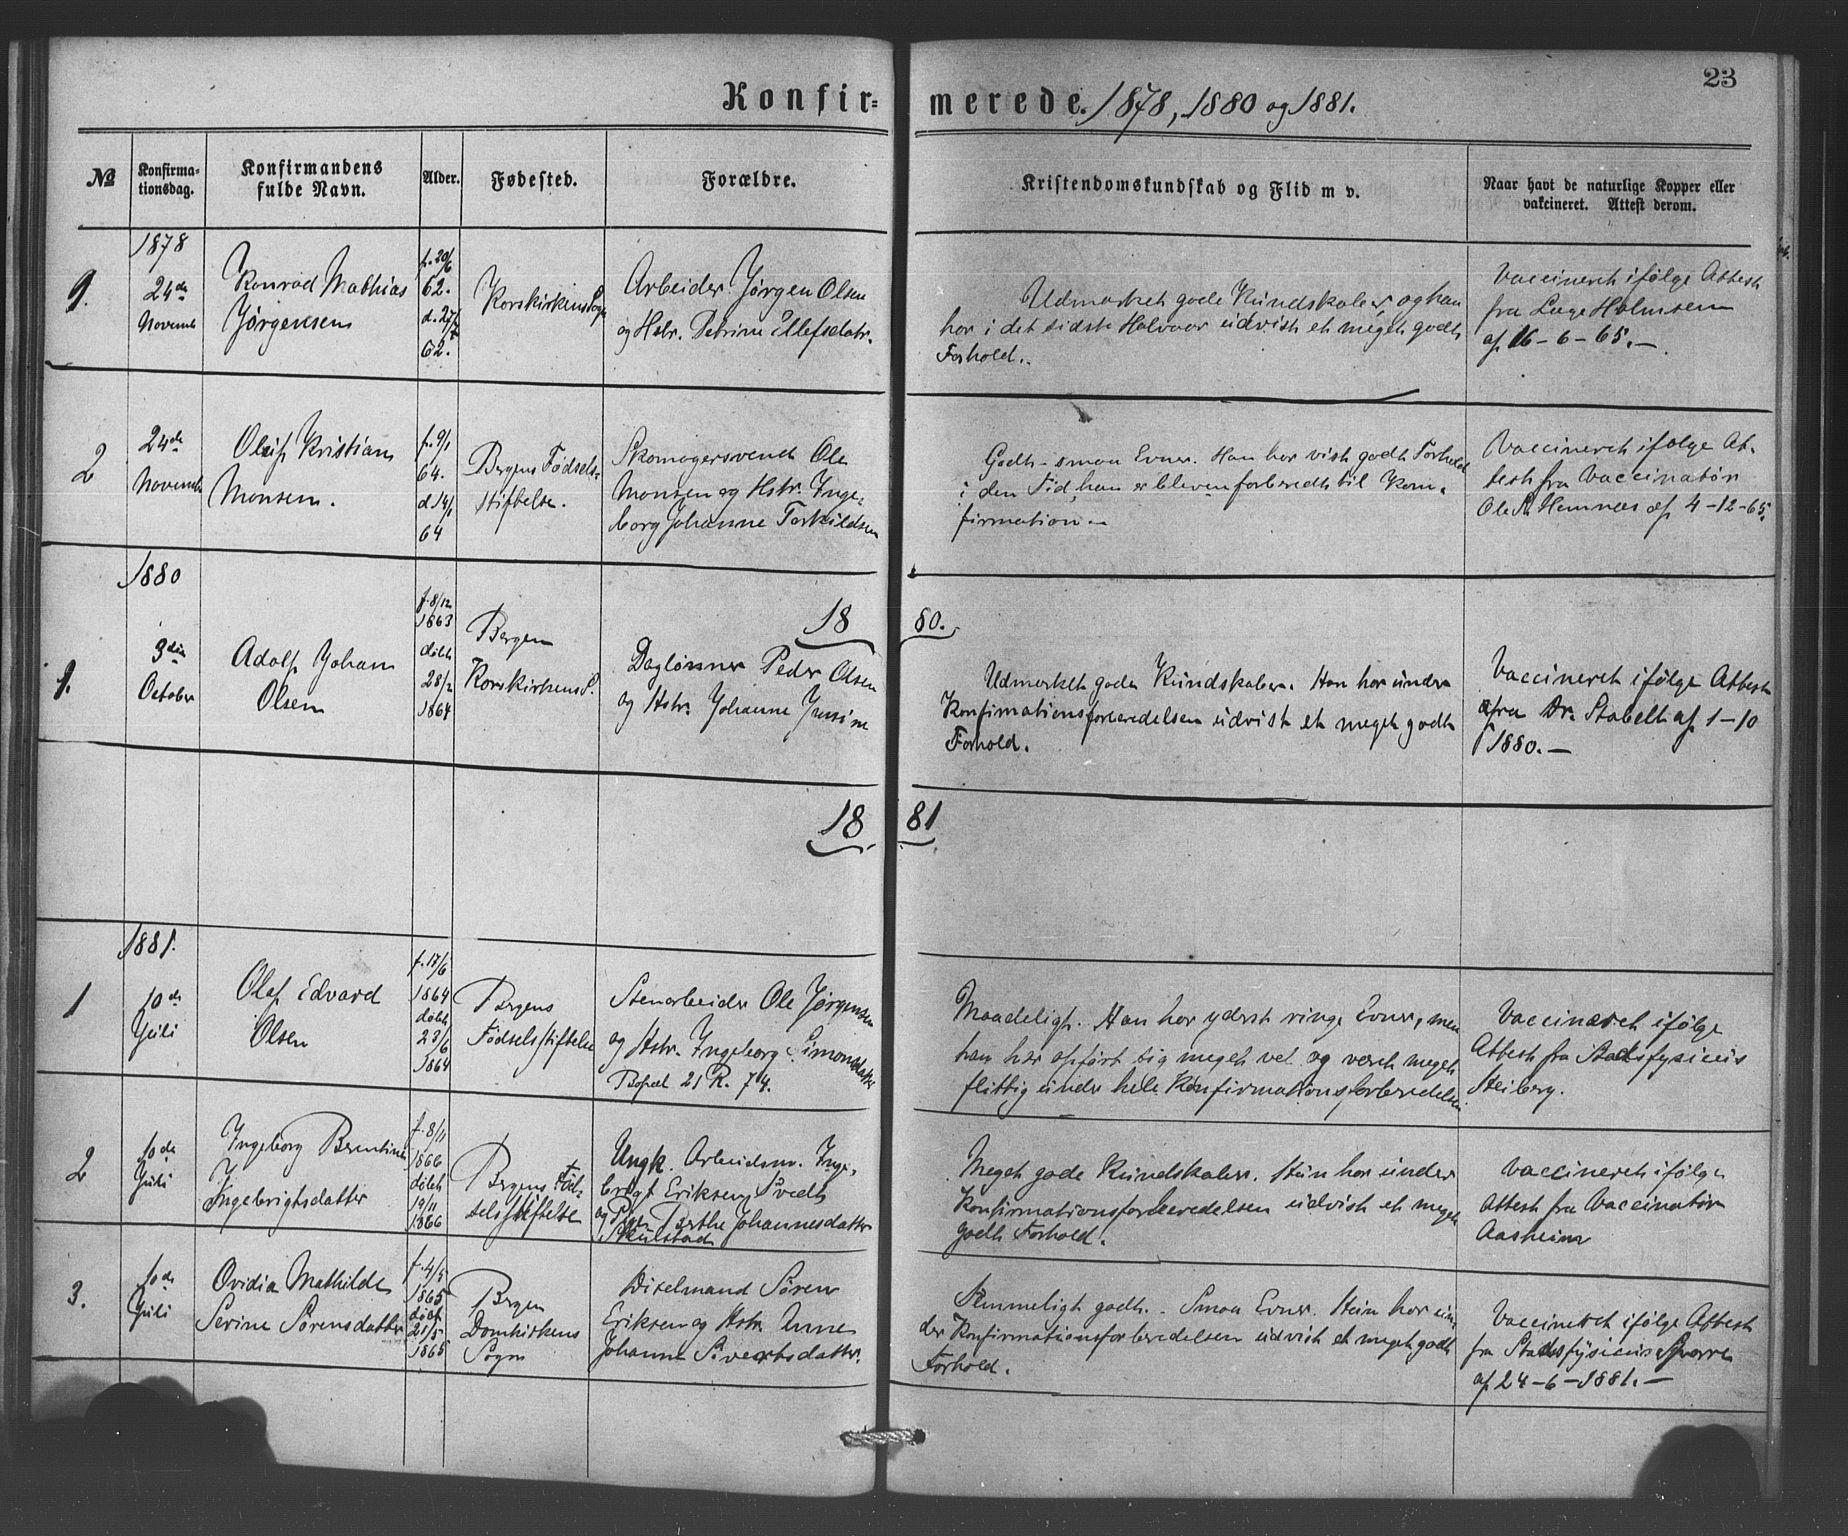 Konfir=
merede. 1878, 1880 og 1881.
23
№
Konfirma-
tionsdag.
Konfirmandens
fulde Navn.
Alder.
Fødested.
Forældre.
Kristendomskundskab og Flid m v.
Naar havt de naturlige Kopper eller
vakcineret. Attest derom.
1.
1878
24de
Novemb
Konrad Mathias
Jørgensen
f. 20/6
62.
d. 27/7
62.
Korskirkens Sogn
Arbeider Jørgen Olsen
og Hstr. Petrine Ellefsdatr.
Udmærket gode Kundskaber, og han
har i det sidste Halvaar udvist et meget godt
Forhold.
Vaccineret ifølge Attest
fra Læge Holmsen
af 16-6-65.-
2
24de
Novemb
Oluf Kristian
Monsen.
f. 9/1
64.
d 14/1
64
Bergens Fødsels-
stiftelse.
Skomagersvend Ole
Monsen og Hstr. Inge-
borg Johanne Torkildsen
Godt - smaa Evner. Han har vist godt Forhold
i den Tid, han er bleven forberedt til Kon-
firmation -
Vaccineret ifølge At-
test fra Vaccinatør
Ole Hemnæs af 4-12-65.
1880
18
80.
1.
3die
October
Adolf Johan
Olsen
f. 8/12
1863
døbt
28/2
1864
Bergen
Korskirkens S.
Daglønner Peder Olsen
og Hstr. Johanne Jensine
Udmerket gode Kundskaber. Han har under
Konfirmationsforberedelsen udvist et meget godt
Forhold.
Vaccineret ifølge Attest
fra Dr. Stabell af 1-10
1880.-
18
81
1881.
1
10de
Juli
Olaf Edvard
Olsen
f. 17/6
1864
døbt
23/6
1864
Bergens
Fødselsstiftelse
Stenarbeider Ole Jørgensen
og Hstr. Ingeborg Simonsdatter
Bopæl 21 R. 74.
Maadeligt. Han har yderst ringe Evner, men
han har opført sig meget vel og været meget
flittig under hele Konfirmationsforberedelsen
Vaccineret ifølge
Attest fra Stadsfysicus
Steiberg.
2
10de
Juli
Ingeborg Berentine
Ingebrigtsdatter
f. 8/11
1866
døbt
19/11
1866
Bergens Fød-
selsstiftelse
Ungk. Arbeidsm. Inge-
brigt Eriksen Tvedt
og Pige Berthe Johannesdatter
Skulstad
Meget gode Kundskaber. Hun har under
Konfirmationsforberedelsen udvist et meget
godt Forhold.
Vaccineret ifølge
Attest fra Vaccinatør
Aasheim
3.
10de
Juli
Ovidia Mathilde
Serine Sørensdatter
f. 4/5
1865
døbt
21/5
1865
Bergen
Domkirkens
Sogn
Søren
Eriksen og Hstr. Anne
Johanne Sivertsdatter.
Temmeligt godt. - Smaa Evner. Hun har un-
der Konfirmationsforberedelsen udvist et meget godt
Forhold.
Vaccineret ifølge Attest
fra Stadsfysicus Sparre
af 24-6-1881.-